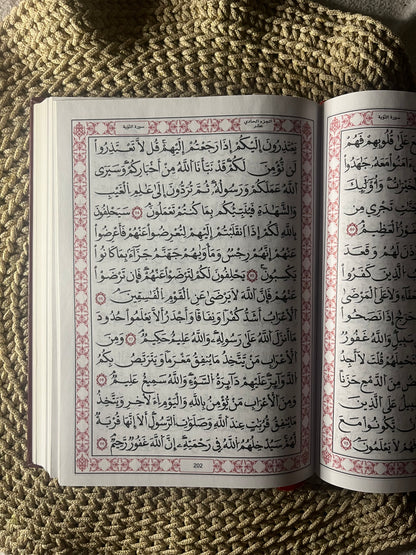 سورة التوبة
عَلَىٰ قُلُوبِهِمْ فَهُمْ
ءَامَنُوا۟ مَعَهُۥ جَٰهَدُوا۟
وَأُو۟لَٰٓئِكَ
تَجْرِى مِن
ٱلْعَظِيمُ
لَهُمْ وَقَعَدَ
ٱلَّذِينَ كَفَرُوا۟
وَلَا عَلَى ٱلْمَرْضَىٰ
إِذَا نَصَحُوا۟
وَٱللَّهُ غَفُورٌ
قُلْتَ لَآ أَجِدُ
مِنَ ٱلدَّمْعِ حَزَنًا
عَلَى ٱلَّذِينَ
يَكُونُوا۟ مَعَ
لَا يَعْلَمُونَ
الجزء الحادي عشر
سورة التوبة
يَعْتَذِرُونَ إِلَيْكُمْ إِذَا رَجَعْتُمْ إِلَيْهِمْ قُل لَّا تَعْتَذِرُوا۟
لَن نُّؤْمِنَ لَكُمْ قَدْ نَبَّأَنَا ٱللَّهُ مِنْ أَخْبَارِكُمْ وَسَيَرَى
ٱللَّهُ عَمَلَكُمْ وَرَسُولُهُۥ ثُمَّ تُرَدُّونَ إِلَىٰ عَٰلِمِ ٱلْغَيْبِ
وَٱلشَّهَٰدَةِ فَيُنَبِّئُكُم بِمَا كُنتُمْ تَعْمَلُونَ ٩٤ سَيَحْلِفُونَ
بِٱللَّهِ لَكُمْ إِذَا ٱنقَلَبْتُمْ إِلَيْهِمْ لِتُعْرِضُوا۟ عَنْهُمْ فَأَعْرِضُوا۟
عَنْهُمْ إِنَّهُمْ رِجْسٌ وَمَأْوَىٰهُمْ جَهَنَّمُ جَزَآءًۢ بِمَا كَانُوا۟
يَكْسِبُونَ ٩٥ يَحْلِفُونَ لَكُمْ لِتَرْضَوْا۟ عَنْهُمْ فَإِن تَرْضَوْا۟
عَنْهُمْ فَإِنَّ ٱللَّهَ لَا يَرْضَىٰ عَنِ ٱلْقَوْمِ ٱلْفَٰسِقِينَ ٩٦
ٱلْأَعْرَابُ أَشَدُّ كُفْرًا وَنِفَاقًا وَأَجْدَرُ أَلَّا يَعْلَمُوا۟ حُدُودَ
مَآ أَنزَلَ ٱللَّهُ عَلَىٰ رَسُولِهِۦ وَٱللَّهُ عَلِيمٌ حَكِيمٌ ٩٧ وَمِنَ
ٱلْأَعْرَابِ مَن يَتَّخِذُ مَا يُنفِقُ مَغْرَمًا وَيَتَرَبَّصُ بِكُمُ
ٱلدَّوَآئِرَ عَلَيْهِمْ دَآئِرَةُ ٱلسَّوْءِ وَٱللَّهُ سَمِيعٌ عَلِيمٌ ٩٨
وَمِنَ ٱلْأَعْرَابِ مَن يُؤْمِنُ بِٱللَّهِ وَٱلْيَوْمِ ٱلْءَاخِرِ وَيَتَّخِذُ
مَا يُنفِقُ قُرُبَٰتٍ عِندَ ٱللَّهِ وَصَلَوَٰتِ ٱلرَّسُولِ أَلَآ إِنَّهَا قُرْبَةٌ
لَّهُمْ سَيُدْخِلُهُمُ ٱللَّهُ فِى رَحْمَتِهِۦٓ إِنَّ ٱللَّهَ غَفُورٌ رَّحِيمٌ ٩٩
202